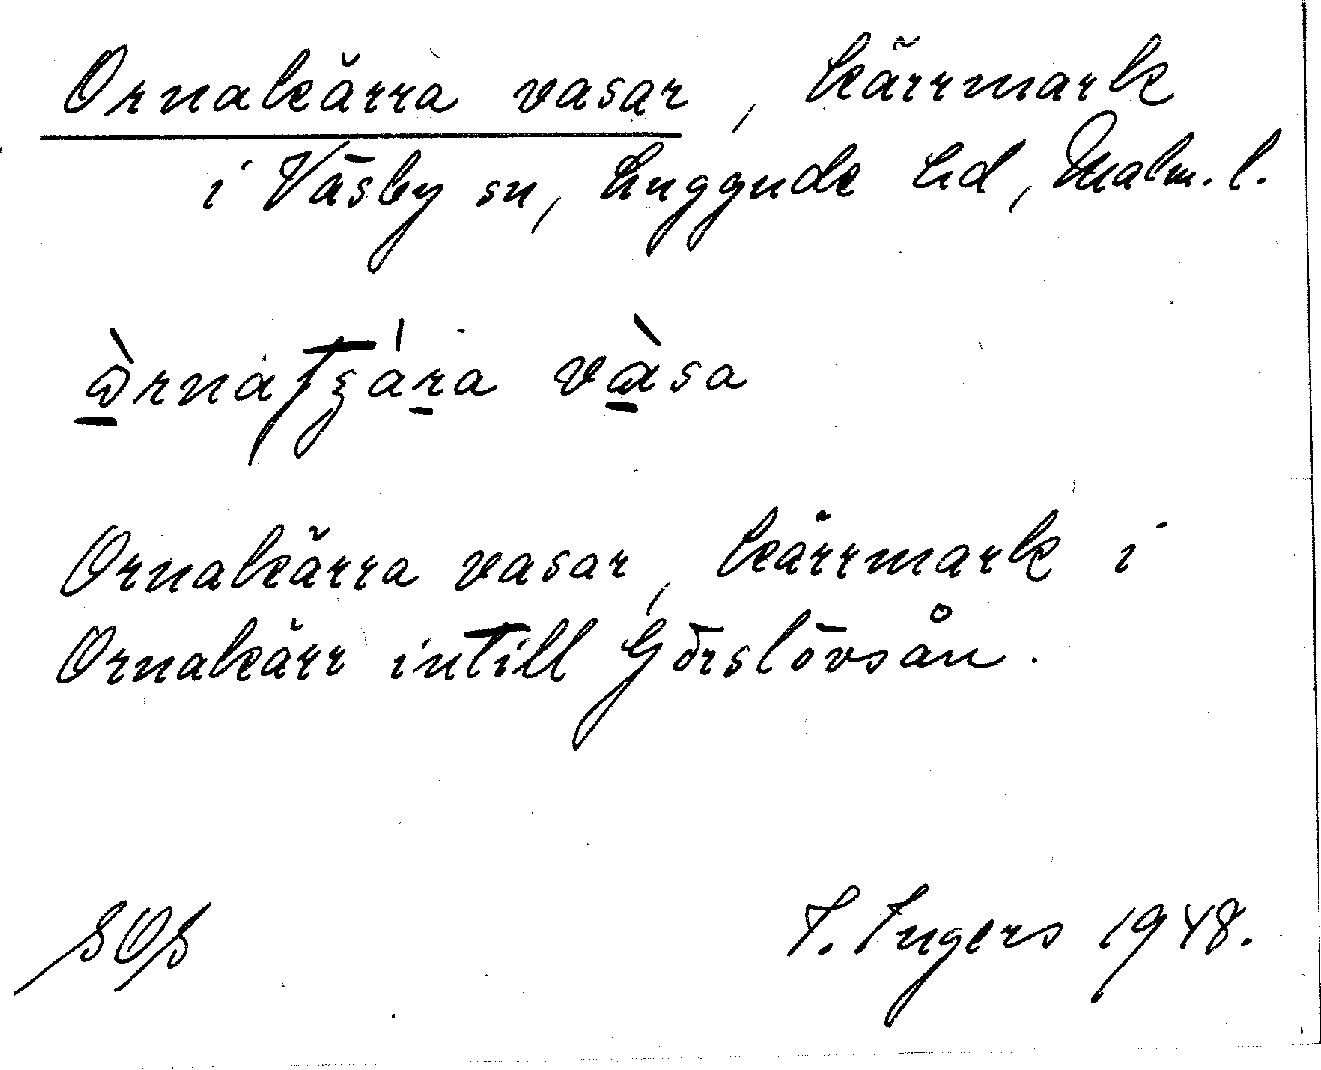 Ornakärra vasar, kärrmark
i Väsby sn, Luggude hd, Malm. l.
vàsa
Ornakärra vasar, kärrmark i
Ornakärr intill Görslövsån.
I. Ingers 1948.